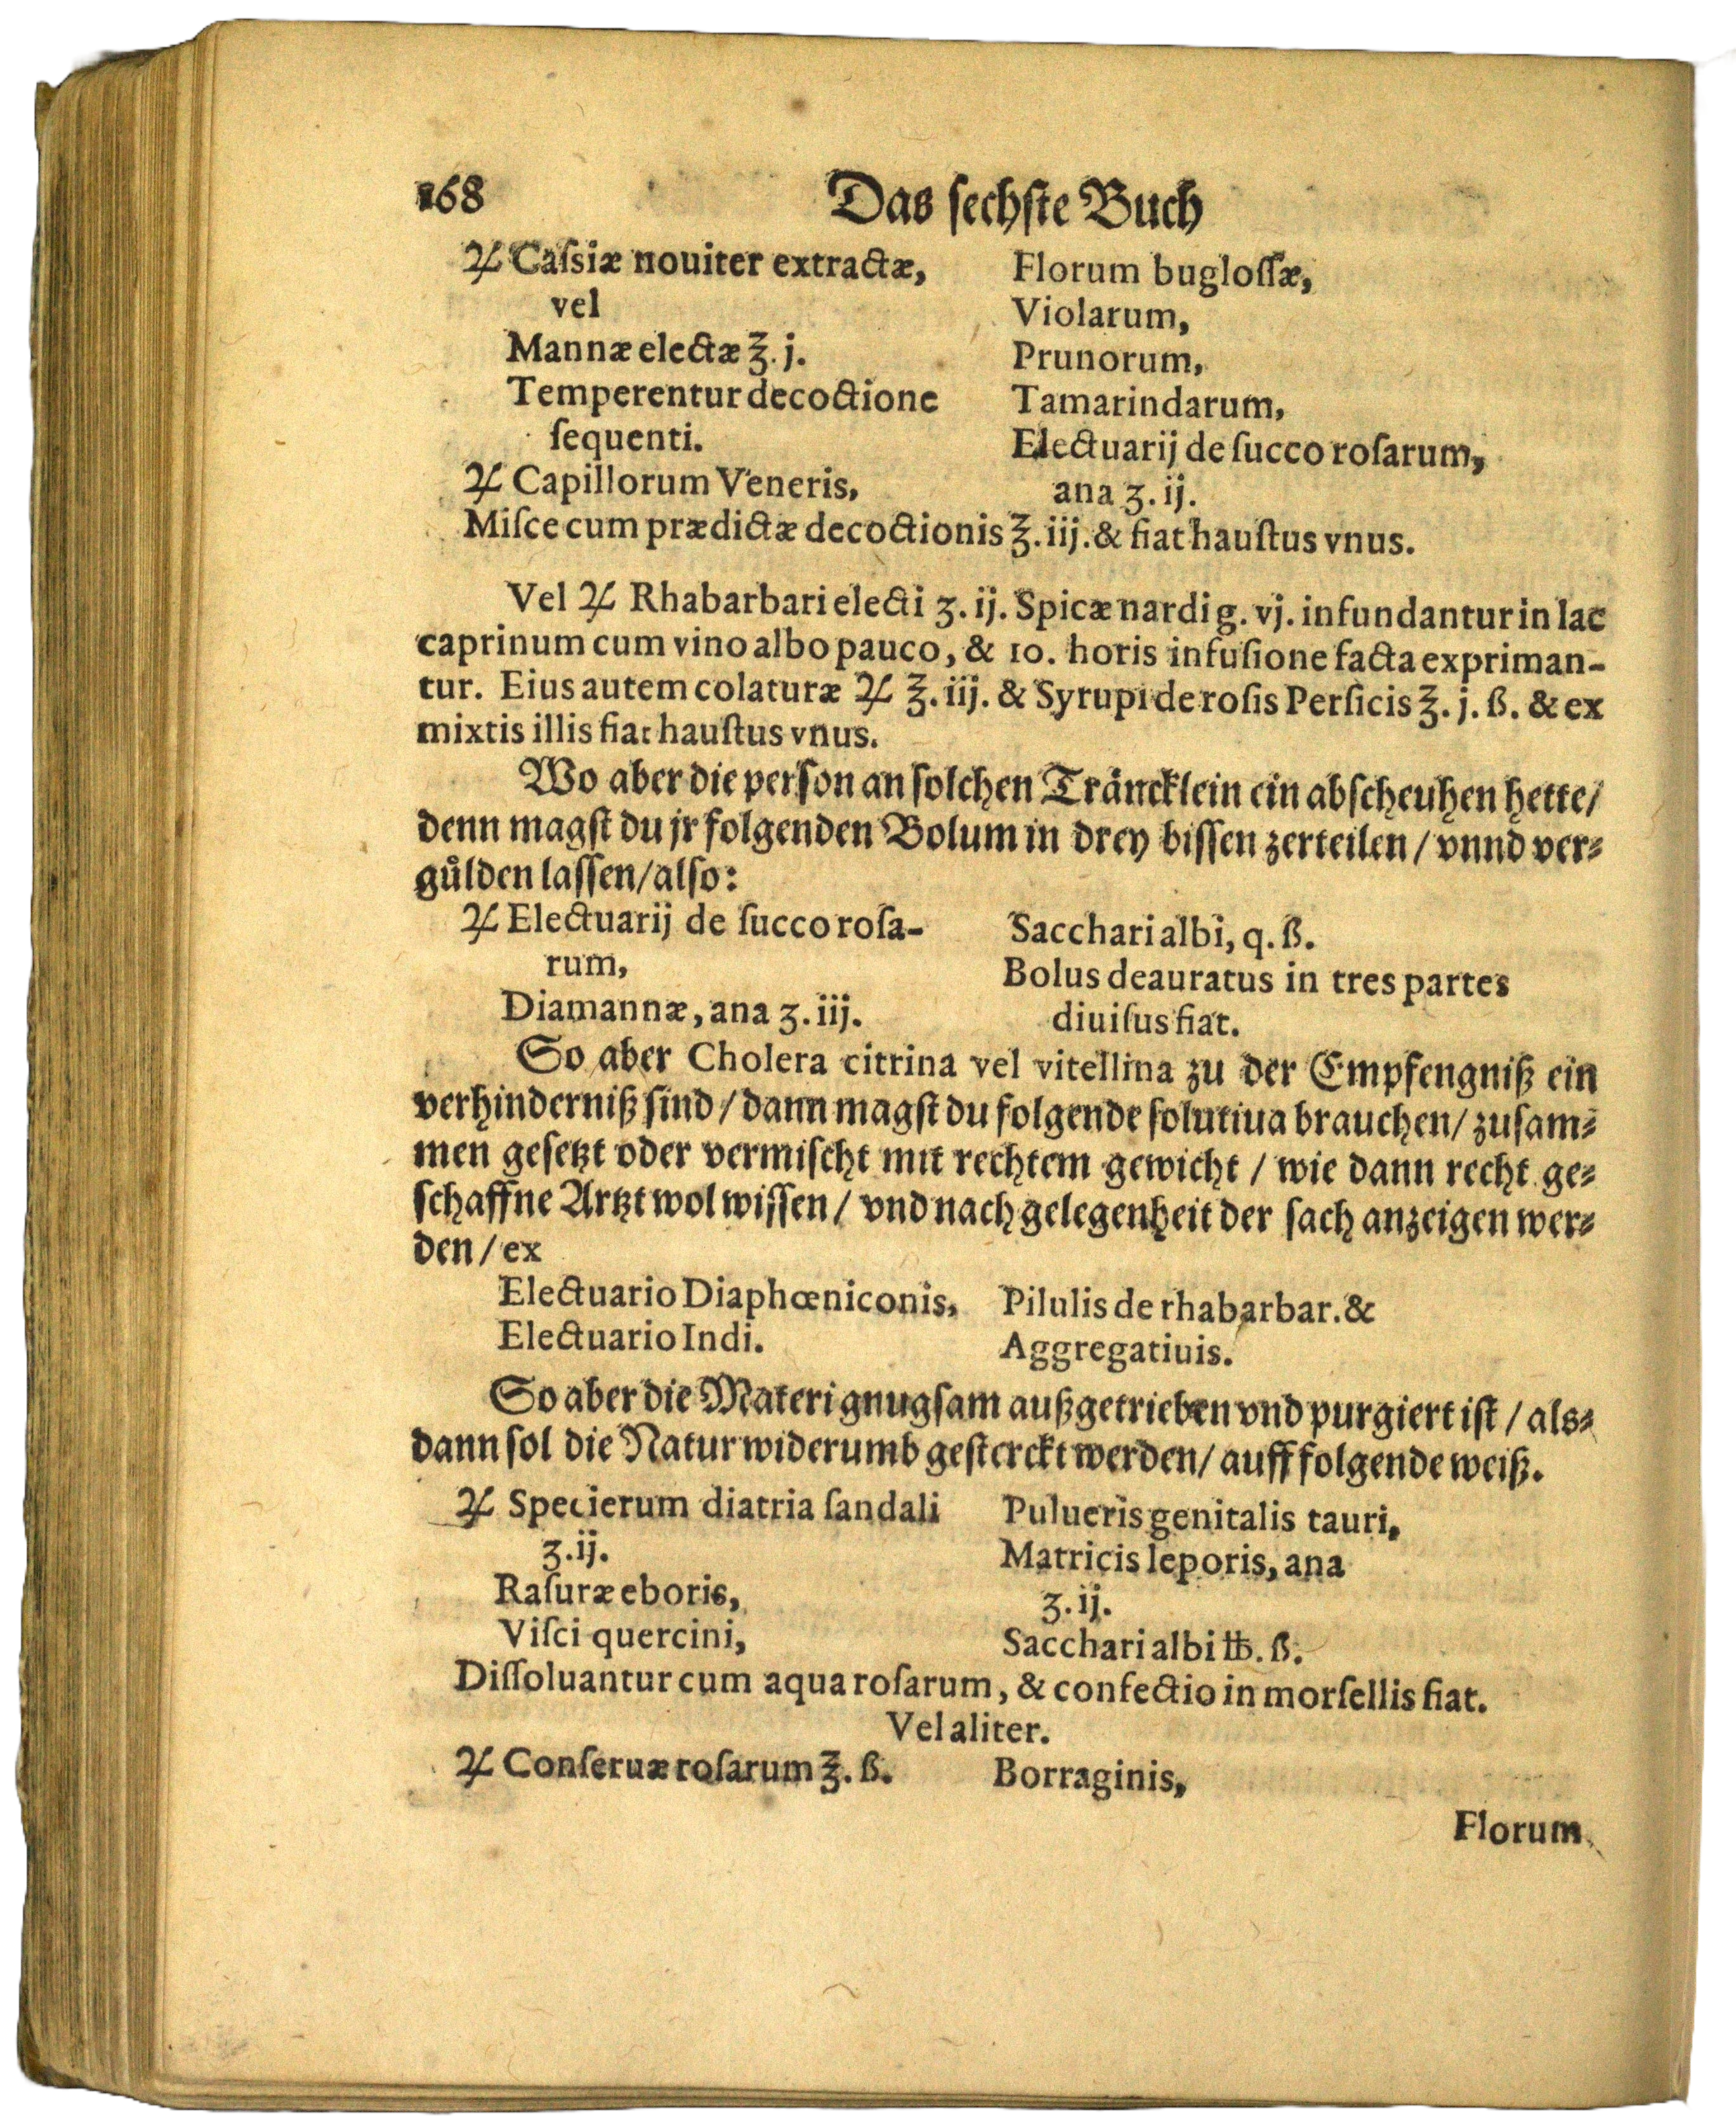 168
Das sechste Buch
♃ Caſsiæ nouiter extractæ,
vel
Mannæ electæ ℥. j.
Temperentur decoctione
ſequenti.
♃ Capillorum Veneris,
Florum bugloſſæ,
Violarum,
Prunorum,
Tamarindarum,
Electuarij de ſucco roſarum,
ana ʒ. ij.
Miſce cum prædictæ decoctionis ℥. iij. & fiat hauſtus vnus.
Vel ♃ Rhabarbari electi ʒ. ij. Spicæ nardi g. vj. infundantur in lac
caprinum cum vino albo pauco, & 10. horis infuſione facta expriman-
tur. Eius autem colaturæ ♃ ℥. iij. & Syrupi de roſis Perſicis ℥. j. ß. & ex
mixtis illis fiat hauſtus vnus.
Wo aber die perſon an ſolchen Träncklein ein abſcheuhen hette/
denn magſt du jr folgenden Bolum in drey biſſen zerteilen / vnnd ver-
guͤlden laſſen/alſo:
♃ Electuarij de ſucco roſa-
rum,
Diamannæ, ana ʒ. iij.
Sacchari albi, q. ß.
Bolus deauratus in tres partes
diuiſus fiat.
So aber Cholera citrina vel vitellina zu der Empfengniß ein
verhinderniß ſind / dann magſt du folgende ſolutiua brauchen/ zuſam-
men geſetzt oder vermiſcht mit rechtem gewicht / wie dann recht ge-
ſchaffne Artzt wol wiſſen / vnd nach gelegenheit der ſach anzeigen wer-
den / ex
Electuario Diaphœniconis,
Electuario Indi.
Pilulis de rhabarbar. &
Aggregatiuis.
So aber die Materi gnugſam außgetrieben vnd purgiert iſt / als-
dann ſol die Natur widerumb geſterckt werden/ auff folgende weiß.
♃ Specierum diatria ſandali
ʒ. ij.
Raſuræ eboris,
Viſci quercini,
Pulueris genitalis tauri,
Matricis leporis, ana
ʒ. ij.
Sacchari albi ℔. ß.
Diſſoluantur cum aqua roſarum, & confectio in morſellis fiat.
Vel aliter.
♃ Conſeruæ roſarum ℥. ß.
Borraginis,
Florum